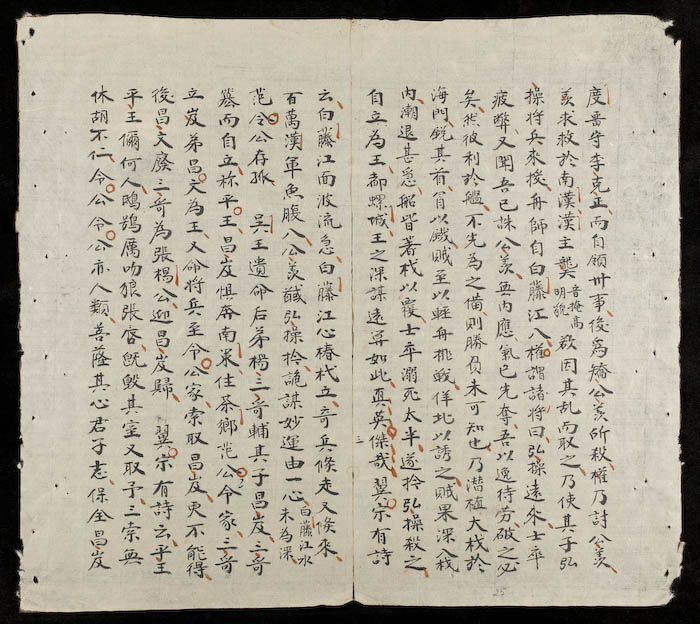 度畨守李克正而自領卅事後爲矯公羡所殺權乃討公羡
羡求救於南漢漢主龑音掩高明貌欲因其乱而取之乃使其子弘
操将兵來援舟師自白藤江入權謂諸将曰弘操遠來士卒
疲弊又聞吾已誅公羡無内應氣已先奪吾以逸待劳破之必
矣然彼利於艦不先為之備則勝負未可知也乃潜植大杙於
海門鋭其首冒以鐵賊至以輕舟挑戰佯北以誘之賊果深入杙
内潮退甚急船皆著杙以覆士卒溺死太半遂擒弘操殺之
自立為王都螺城王之深謀遠算如此真英傑哉翼宗有詩
三
云白藤江面波流急白藤江心樁杙立奇兵倏走又倏來
百萬漢軍魚腹入公羡馘弘操擒詭謀妙運由一心白藤江水未為深
范令公存孤 吳王遺命后弟楊三哥輔其子昌岌三哥
簒而自立称平王昌岌惧奔南策住茶鄉范公令家三哥
立岌弟昌文為王又命将兵至令公家索取昌岌吏不能得
後昌文廢三哥為張楊公迎昌岌歸 翼宗有詩云平王
平王儞何人鴟鴞厲吻狼張唇既毁其室又取予三索無
休胡不仁令公令公亦人類菩薩其心君子志保全昌岌
25